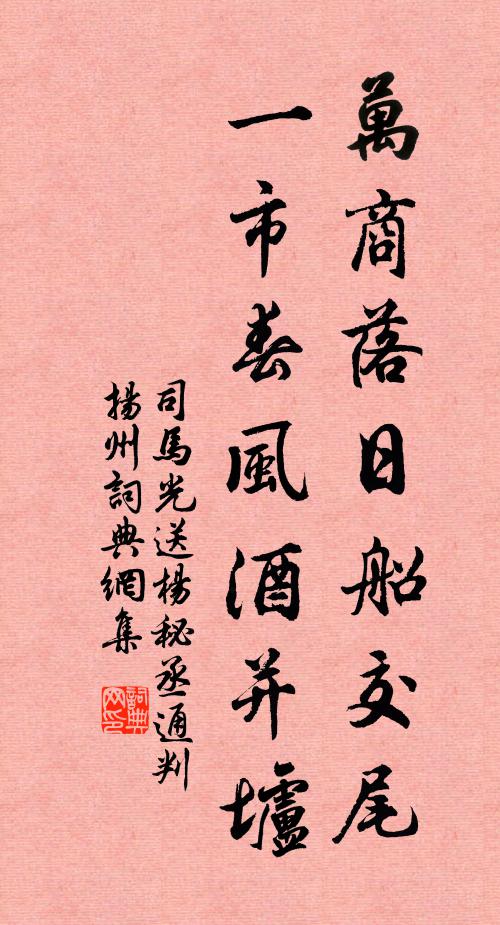 萬商落日船交尾
一市春風酒并壚
司馬光送楊秘丞通判
揚州詞典網集
詞典网印